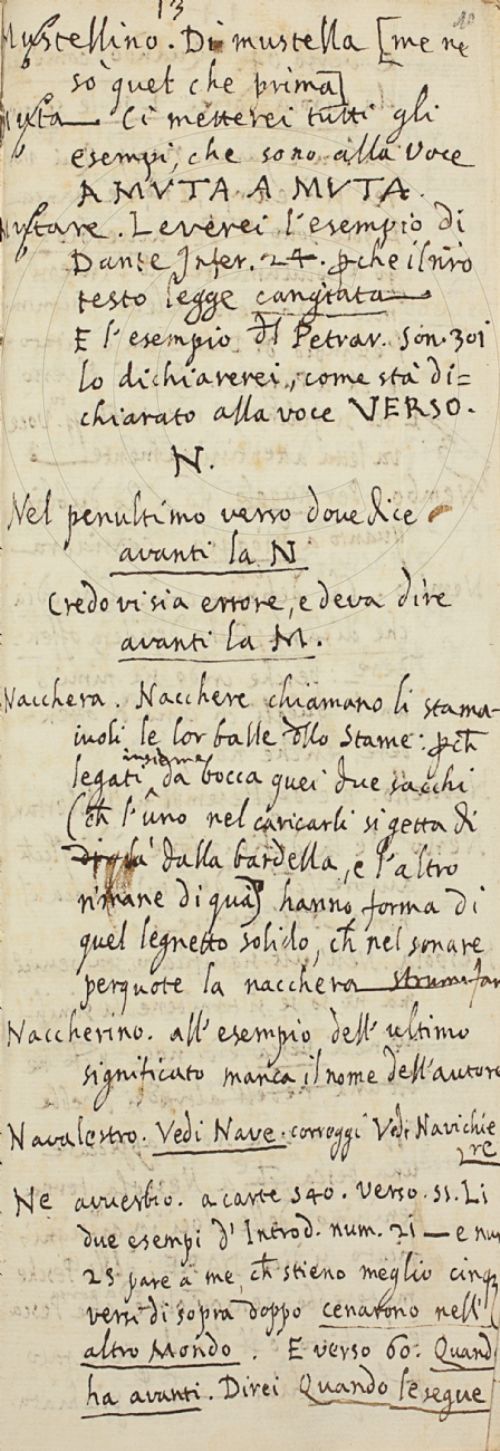 13
Mustellino. Di mustella [me ne
so quel che prima]
Muta — Ci metterei tutti gli
esempi, che sono alla voce
A MVTA A MVTA.
Mutare. Leverei l'esempio di
Dante Infer. 24. ꝑche il nr̃o
testo legge cangiata —
E l'esempio dl Petrar. son. 301
lo dichiarerei, come sta di=
chiarato alla voce VERSO.
N.
Nel penultimo verso dove dice
avanti la N
Credo vi sia errore, e deva dire
avanti la M.
Nacchera. Nacchere chiamano li stama-
iuoli le lor balle dllo stame: ꝑch̃
legati insieme da bocca quei due sacchi
(ch̃ l'uno nel caricarli si getta di
là dalla bardella, e l'altro
rimane di quà) hanno forma di
quel legnetto solido, ch̃ nel sonare
perquote la nacchera
Naccherino. all'esempio dell'ultimo
significato manca il nome dell'autore
Navalestro. Vedi Nave. correggi Vedi Navichie
re
Ne avverbio. a carte 540. verso. 55. Li
due esempi d' Introd. num. 21 — e num
25 pare a me, ch̃ stieno meglio cinqꝫ
versi di sopra doppo cenarono nell'
altro Mondo. E verso 60. Quand
ha avanti. Direi Quando le segue